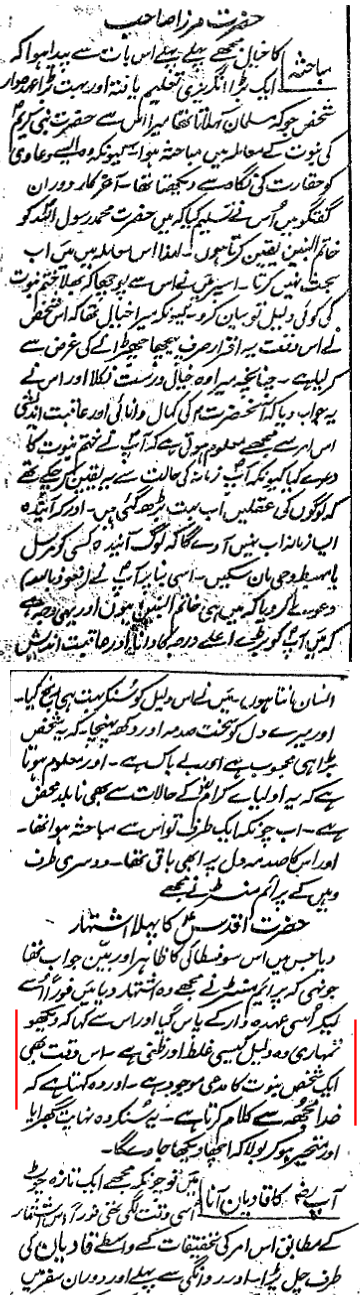 حضرت مرزا صاحب
مباحثہ کا خیال مجھے پہلے پہل اس بات سے پیدا ہوا کہ
ایک بڑا انگریزی تعلیم یافتہ اور بہت بڑا عہدہ دار
شخص جو کہ مسلمان کہلاتا تھا میرا اس سے حضرت نبی کریم
کی نبوت کے معاملہ میں مباحثہ ہوا۔ کیونکہ وہ ایسے دعاوی
کو حقارت کی نگاہ سے دیکھتا تھا۔ آخر کار دوران
گفتگو میں اس نے تسلیم کیا کہ میں حضرت محمد رسول اللہ کو
خاتم النبیین یقین کرتا ہوں۔ لہذا اس معاملہ میں میں اب
بحث نہیں کرتا۔ اسپر میں نے اس سے پوچھا کہ بھلا ختم نبوت
کی کوئی دلیل تو بیان کرو۔ کیونکہ میرا خیال تھا کہ اس شخص
نے اس وقت یہ اقرار صرف پیچھا چھڑانے کی غرض سے
کر لیا ہے۔ چنانچہ میرا وہ خیال درست نکلا اور اس نے
یہ جواب دیا کہ آنحضرت کی کمال دانائی اور عاقبت اندیشی
اس امر سے مجھے معلوم ہوتی ہے کہ آپ نے ختم نبوت کا
دعوے کیا کیونکہ آپ زمانہ کی حالت سے یہ یقین کر چکے تھے
کہ لوگوں کی عقلیں اب بہت بڑھ گئی ہیں۔ اور کہ آئندہ
ایسا زمانہ اب نہیں آوے گا کہ لوگ آئندہ کسی کو مرسل
یا مہبط وحی مان سکیں۔ اسی بنا پر آپ نے (نعوذ باللہ)
دعوے کر دیا کہ میں ہی خاتم النبیین ہوں اور یہی وجہ ہے
کہ میں آپ کو بڑے اعلے درجہ کا دانا اور عاقبت اندیش
انسان مانتا ہوں، میں نے اس دلیل کو سنکر بہت ہی رنج کیا۔
اور میرے دل کو سخت صدمہ اور دکھ پہنچا۔ کہ یہ شخص
بڑا ہی محجوب ہے اور بے باک ہے۔ اور معلوم ہوتا
ہے کہ یہ اولیائے کرام کے حالات سے بھی نابلد محض
ہے۔ اب چونکہ ایک طرف تو اس سے مباحثہ ہوا تھا۔
اور اس کا صدمہ دل پر ابھی باقی تھا۔ دوسری طرف
وہیں کے پرائم منسٹر نے مجھے
حضرت اقدس کا پہلا اشتہار
دیا جس میں اس سوفسطائی کا ظاہر اور بین جواب تھا
جونہی کہ پرائم منسٹر نے مجھے وہ اشتہار دیا میں فوراً اسے
لیکر اسی عہدہ دار کے پاس گیا اور اس سے کہا کہ دیکھو
تمہاری وہ دلیل کیسی غلط اور ظنی ہے۔ اس وقت بھی
ایک شخص نبوت کا مدعی موجود ہے۔ اور وہ کہتا ہے کہ
خدا مجھ سے کلام کرتا ہے۔ یہ سنکر وہ نہایت گھبرایا
اور متحیر ہو کر بولا کہ اچھا دیکھا جاوے گا۔
آپ کا قادیان آنا میں تو چونکہ مجھے ایک تازہ چوٹ
اسی وقت لگی تھی فوراً اس اشتہار
کے مطابق اس امر کی تحقیقات کے واسطے قادیان کی
طرف چل پڑا۔ اور روانگی سے پہلے اور دوران سفر میں